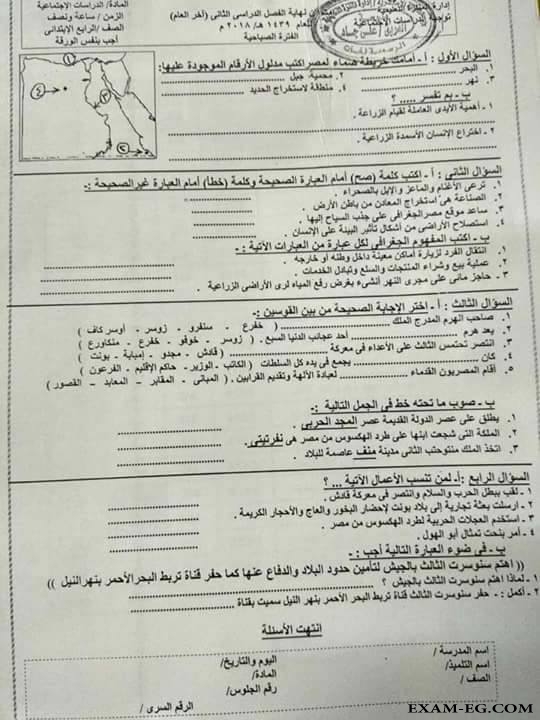 إدارة
توجيه الدراسات الاجتماعية
نهاية الفصل الدراسى الثانى (آخر العام)
١٤٣٩ هـ / ٢٠١٨ م
الفترة الصباحية
المادة/ الدراسات الإجتماعية
الزمن / ساعة ونصف
الصف/الرابع الابتدائى
أجب بنفس الورقة
السؤال الأول : أ - أمامك خريطة صماء لمصر اكتب مدلول الأرقام الموجودة عليها:
١. البحر ......... ٢. محمية: جبل .........
٣. نهر ......... ٤. منطقة لاستخراج الحديد .........
ب - بم تفسر ...... ؟
١ - أهمية الأيدى العاملة لقيام الزراعة .
٢ - اختراع الإنسان الأسمدة الزراعية .
السؤال الثانى : أ - اكتب كلمة (صح) أمام العبارة الصحيحة وكلمة (خطأ) أمام العبارة غير الصحيحة :-
١. ترعى الأغنام والماعز والإبل بالصحراء .
٢. الصناعة هى استخراج المعادن من باطن الأرض .
٣. ساعد موقع مصر الجغرافى على جذب السياح إليها .
٤. استصلاح الأراضى من أشكال تأثير البيئة على الإنسان .
ب - اكتب المفهوم الجغرافى لكل عبارة من العبارات الآتية :-
١. انتقال الفرد لزيارة أماكن معينة داخل وطنه أو خارجه .
٢. عملية بيع وشراء المنتجات والسلع وتبادل الخدمات .
٣ - حاجز مائى على مجرى النهر أنشىء بغرض رفع المياه لرى الأراضى الزراعية .
السؤال الثالث : أ - اختر الإجابة الصحيحة من بين القوسين :-
١. صاحب الهرم المدرج الملك ......... ( خفرع - سنفرو - زوسر - أوسر كاف )
٢. يعد هرم ......... أحد عجائب الدنيا السبع . ( زوسر - خوفو - خفرع - منكاورع )
٣. انتصر تحتمس الثالث على الأعداء فى معركة ......... ( قادش - مجدو - إمبابة - بونت )
٤. كان ......... يجمع فى يده كل السلطات ( الكاتب - الوزير - حاكم الإقليم - الفرعون )
٥. أقام المصريون القدماء ......... لعبادة الآلهة وتقديم القرابين . ( المبانى - المقابر - المعابد - القصور )
ب - صوب ما تحته خط فى الجمل التالية :-
١. يطلق على عصر الدولة القديمة عصر المجد الحربى .
٢. الملكة التى شجعت ابنها على طرد الهكسوس من مصر هى نفرتيتى .
٣. اتخذ الملك منتوحتب الثانى مدينة منف عاصمة للبلاد .
السؤال الرابع : أ- لمن تنسب الأعمال الآتية ... ؟
١ - لقب ببطل الحرب والسلام وانتصر فى معركة قادش .
٢ - أرسلت بعثة تجارية إلى بلاد بونت لإحضار البخور والعاج والأحجار الكريمة .
٣ - استخدم العجلات الحربية لطرد الهكسوس من مصر .
٤ - أمر بنحت تمثال أبو الهول .
ب - فى ضوء العبارة التالية أجب :-
(( اهتم سنوسرت الثالث بالجيش لتأمين حدود البلاد والدفاع عنها كما حفر قناة تربط البحر الأحمر بنهر النيل ))
١ - لماذا اهتم سنوسرت الثالث بالجيش ؟
٢ - أكمل :- حفر سنوسرت الثالث قناة تربط البحر الأحمر بنهر النيل سميت بقناة .........
انتهت الأسئلة
اسم المدرسة / اليوم والتاريخ/
اسم التلميذ/ المادة/
الصف / رقم الجلوس/
الرقم السرى /
EXAM-EG.COM